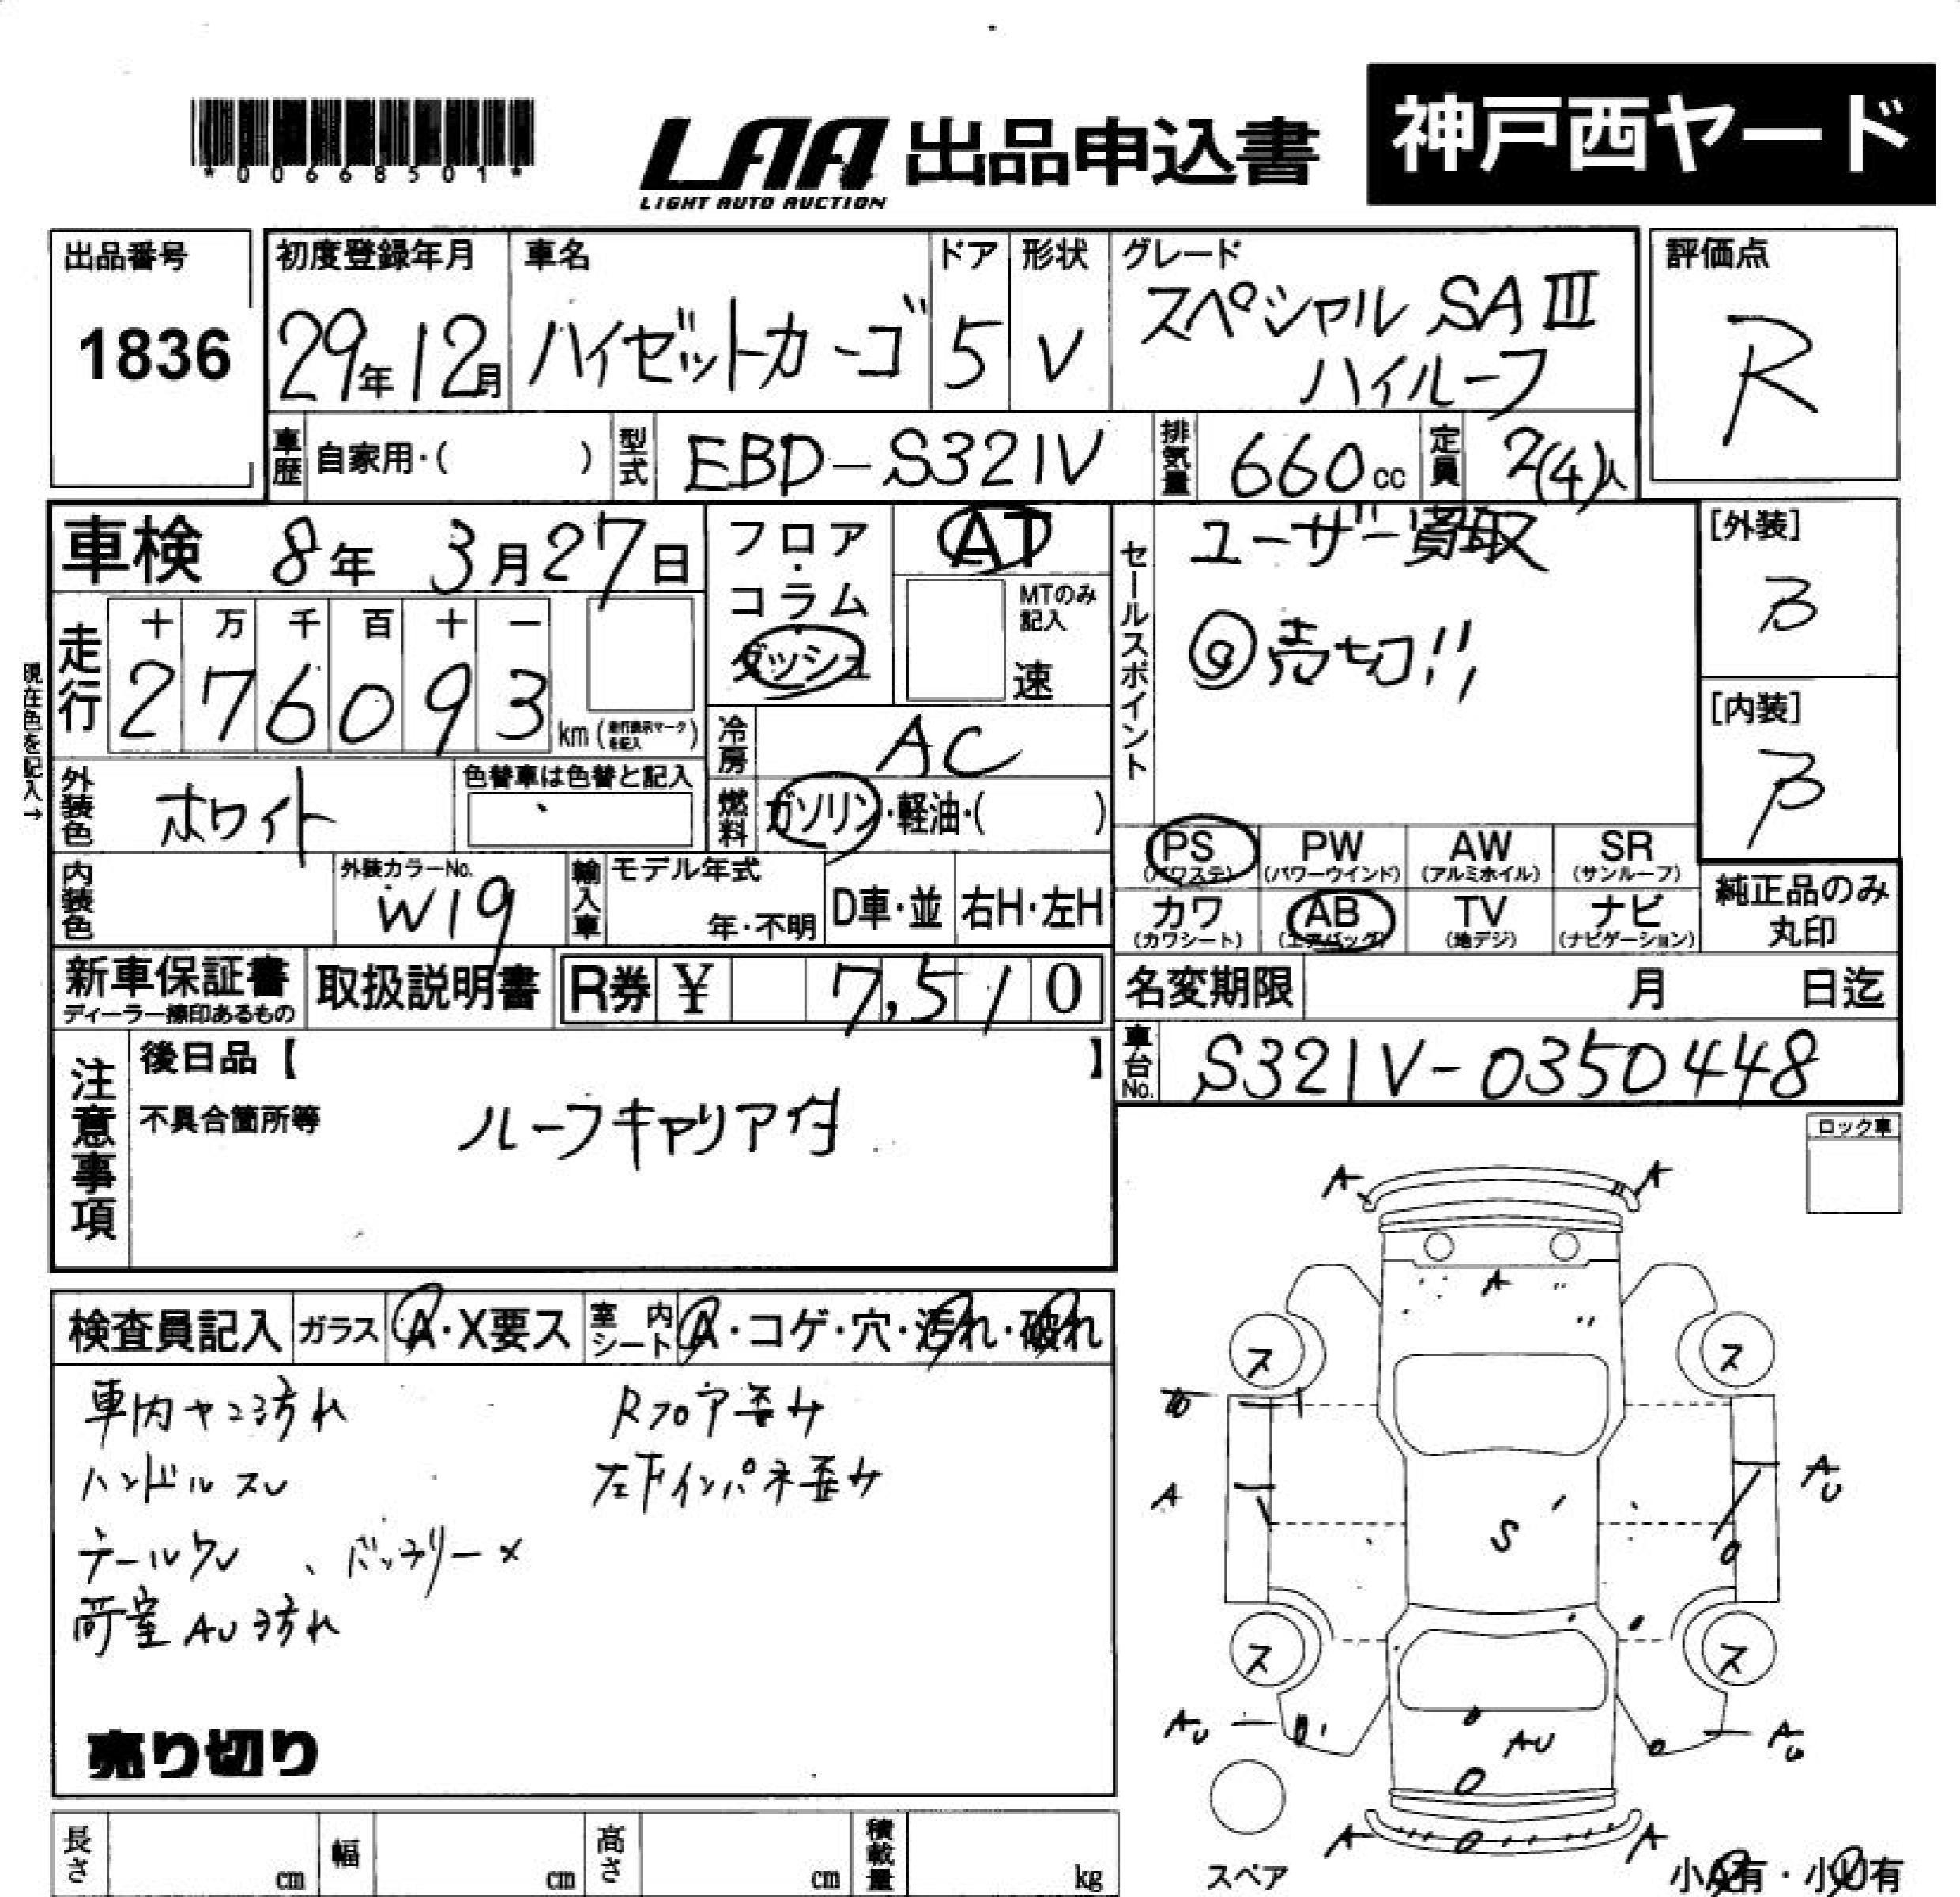 *00668501*
LAA 出品申込書
LIGHT AUTO AUCTION
神戸西ヤード
出品番号
1836
初度登録年月
29年12月
車名
ハイゼットカーゴ
ドア
5
形状
V
グレード
スペシャル SAⅢ
ハイルーフ
評価点
R
車歴
自家用・( )
型式
EBD-S321V
排気量
660cc
定員
2(4)人
車検 8年 3月27日
走行
十 万 千 百 十 一
2 7 6 0 9 3
km(走行表示マークを記入)
現在色を記入→
フロア・コラム・ダッシュ
AT
MTのみ記入
速
冷房
AC
燃料
ガソリン・軽油・( )
セールスポイント
ユーザー買取
売切!!
[外装]
B
[内装]
B
外装色
ホワイト
色替車は色替と記入
内装色
外装カラーNo.
W19
輸入車
モデル年式
年・不明
D車・並
右H・左H
PS
(パワステ)
PW
(パワーウインド)
AW
(アルミホイル)
SR
(サンルーフ)
カワ
(カワシート)
AB
(エアバッグ)
TV
(地デジ)
ナビ
(ナビゲーション)
純正品のみ
丸印
新車保証書
ディーラー捺印あるもの
取扱説明書
R券 ¥ 7,510
名変期限 月 日迄
車台No.
S321V-0350448
注意事項
後日品【 】
不具合箇所等
ルーフキャリア付
ロック車
検査員記入
ガラス
A・X要ス
室内シート
A・コゲ・穴・汚れ・破れ
車内ヤニ汚れ
Rフロア歪サ
ハンドルスレ
左下インパネ歪サ
テールワレ、バッテリー×
荷室AU汚れ
売り切り
A A
A
ス ス
A AU
S
ス ス
AU AU AU
A A
スペア
小A有・小U有
長さ cm
幅 cm
高さ cm
積載量 kg